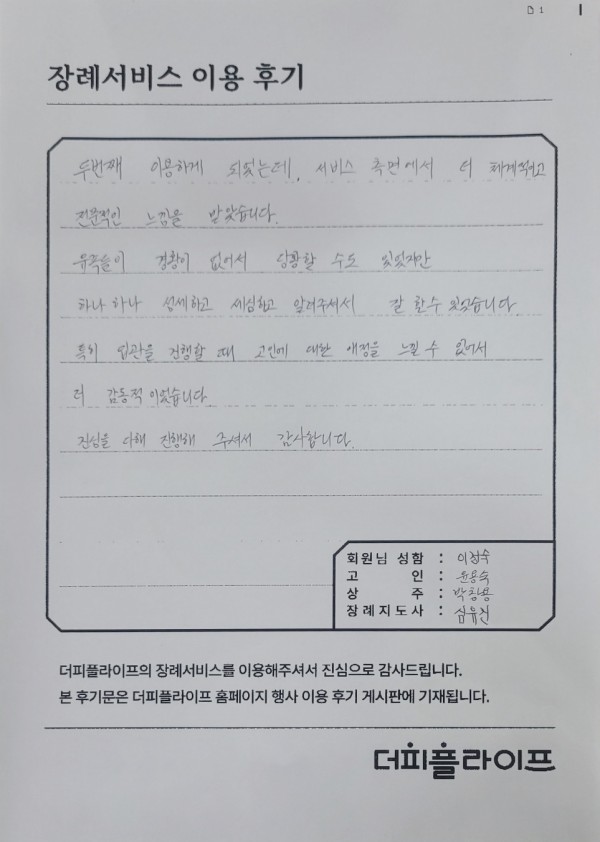 1
장례서비스 이용 후기
두번째 이용하게 되었는데, 서비스 측면에서 더 체계적이고
전문적인 느낌을 받았습니다.
유족들이 경황이 없어서 당황할 수도 있었지만
하나 하나 섬세하고 세심하고 알려주셔서 잘 할 수 있었습니다.
특히 입관을 진행할 때 고인에 대한 애정을 느낄 수 있어서
더 감동적이었습니다.
진심을 다해 진행해 주셔서 감사합니다.
회원님 성함 : 이정숙
고 인 : 윤용숙
상 주 : 박창용
장례지도사 : 심유진
더피플라이프의 장례서비스를 이용해주셔서 진심으로 감사드립니다.
본 후기문은 더피플라이프 홈페이지 행사 이용 후기 게시판에 기재됩니다.
더피플라이프